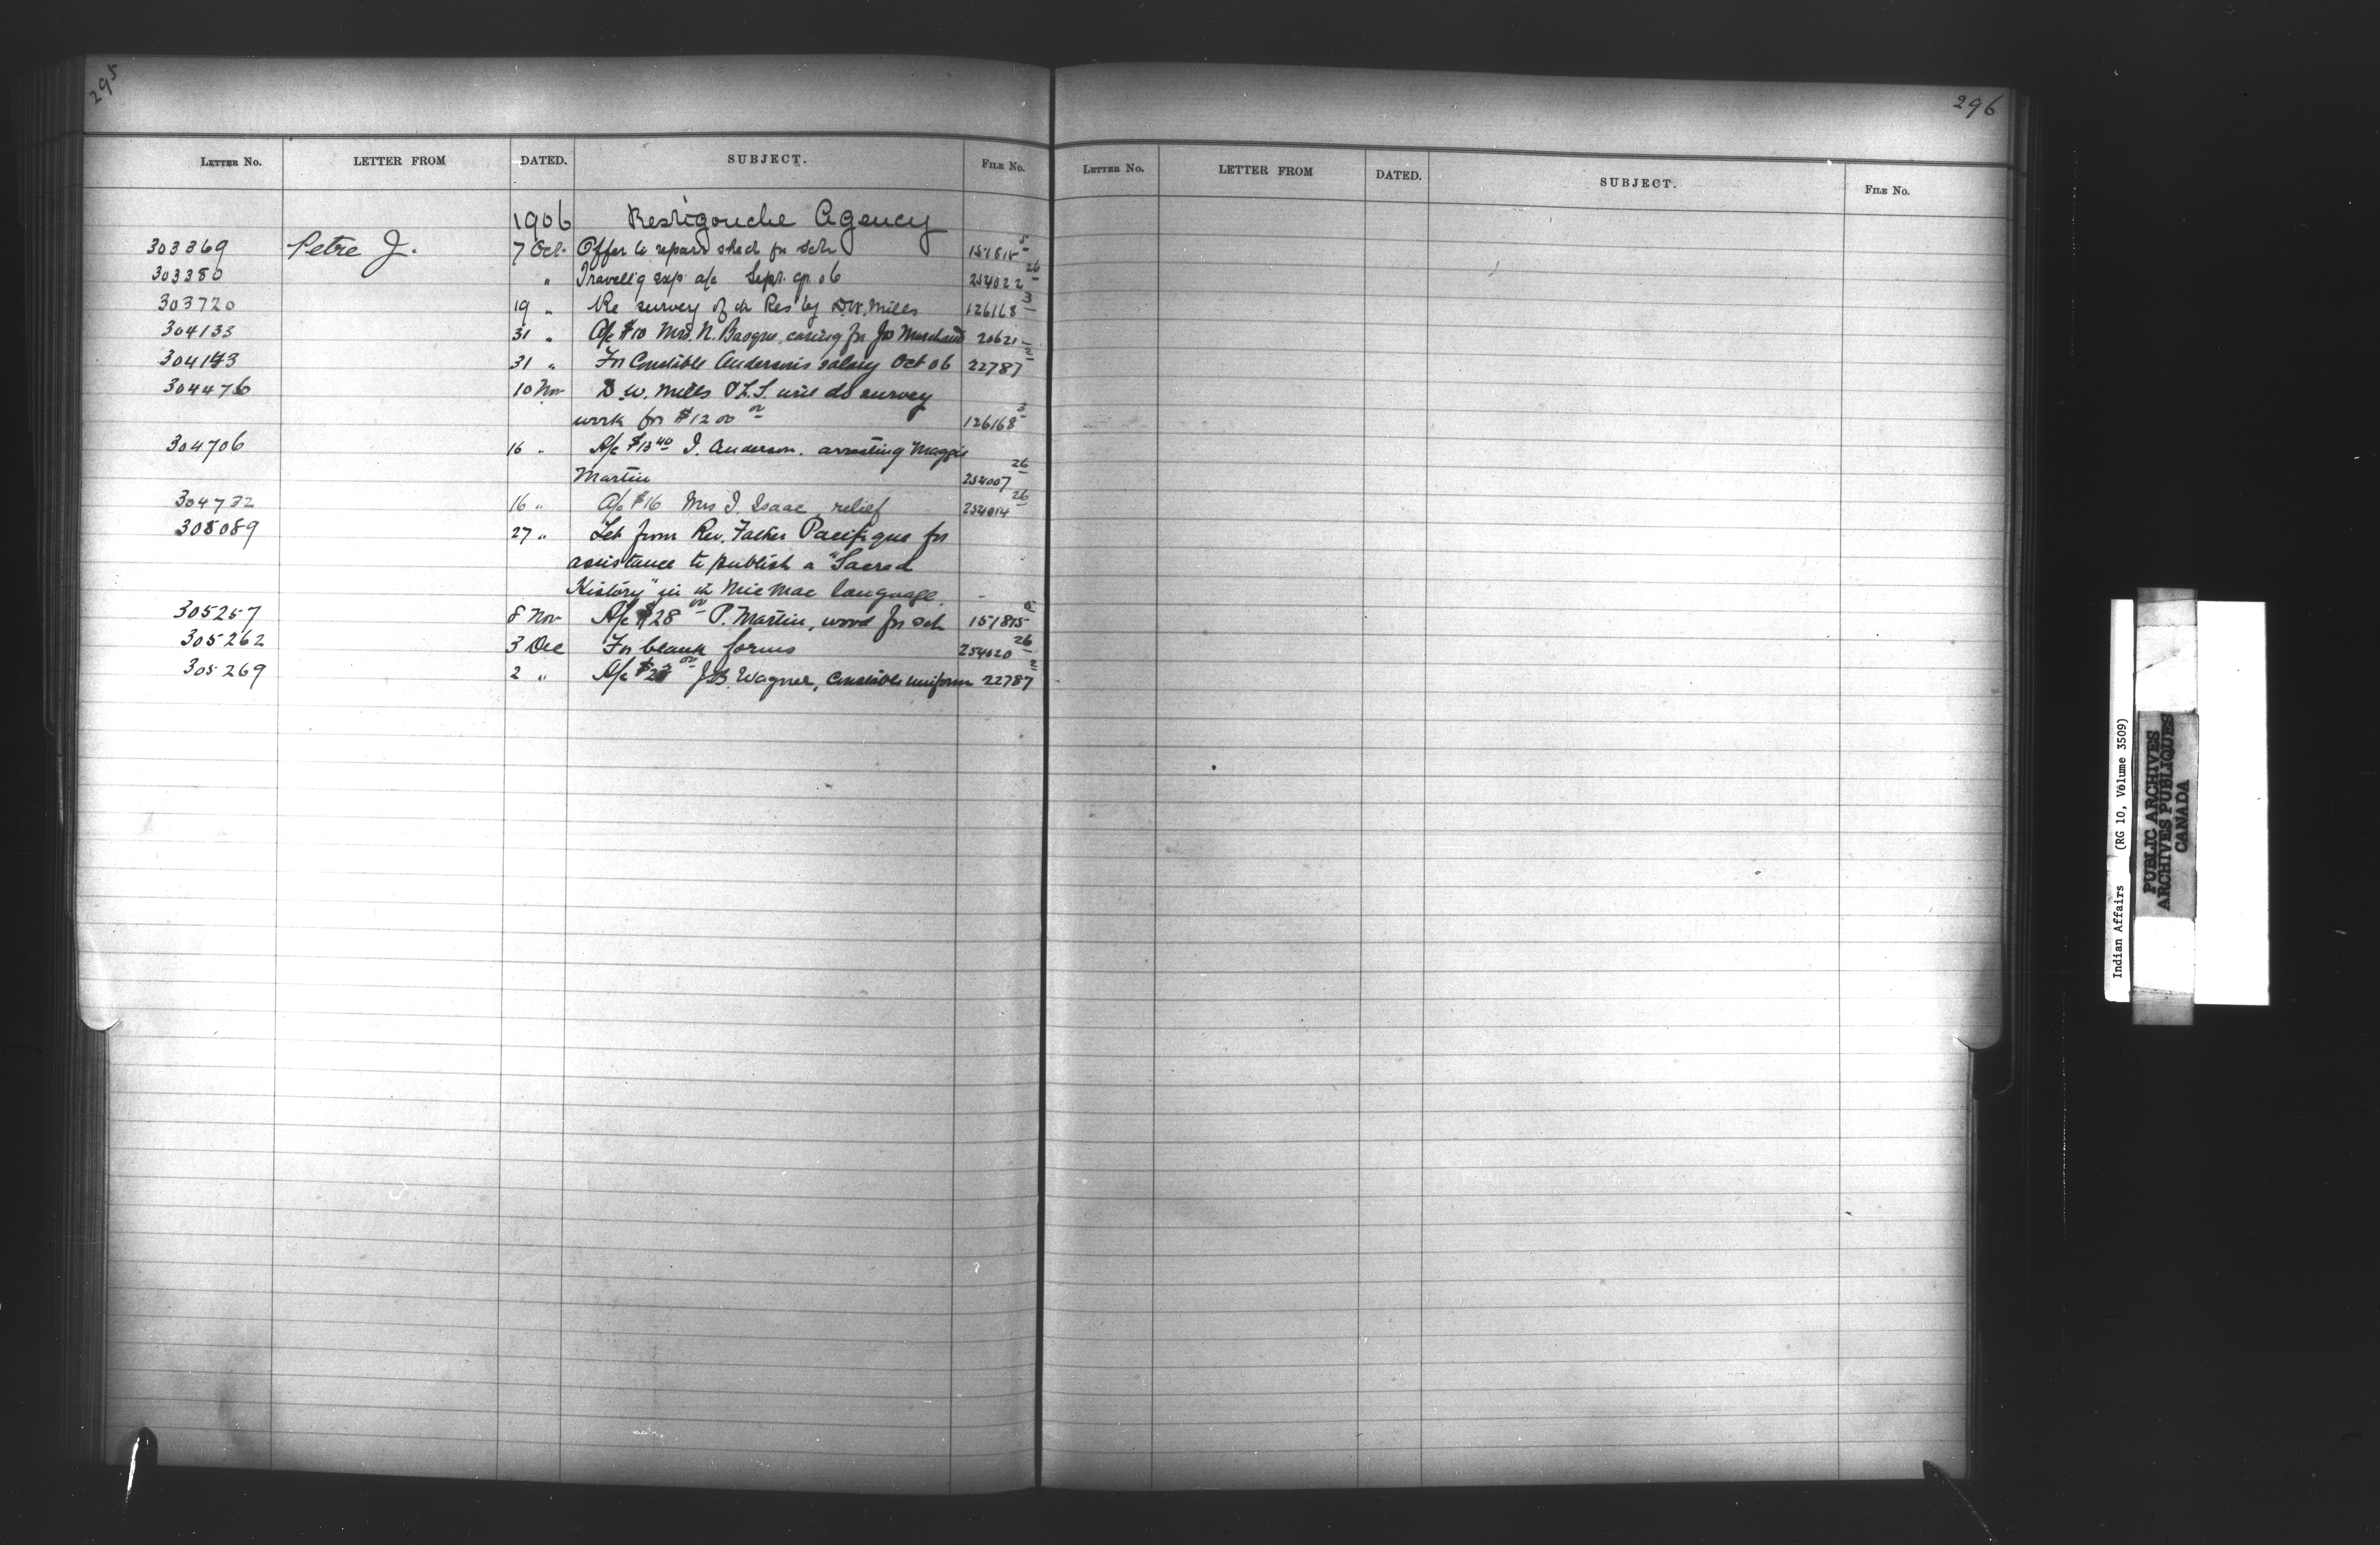 295
LETTER No. LETTER FROM DATED. SUBJECT. FILE No.
1906 Restigouche Agency
303369 Petre J. 7 Oct. Offer to repair shed for sch 151815-5
303380 " Travell'g exp. a/c Sept. qr. 06 254022-26
303720 19 " Re survey of th Res by D.W. Mills 126168-3
304133 31 " A/c $10 Mrs. N. Basque, caring for Jo Marchand 20621-
304143 31 " For Constable Anderson's salary Oct 06 22787-2
304476 10 Nov D.W. Mills P.L.S. will do survey
work for $1200 00 126168-3
304706 16 " A/c $13 40 I. Anderson. arresting Maggie
Martin 254007-26
304732 16 " A/c $16 Mrs I. Isaac, relief 254014-26
305089 27 " Let from Rev. Father Pacifique for
assistance to publish a "Sacred
History" in th Mic Mac language. -
305257 8 Nov A/c $28 00 P. Martin, wood for sch 151815-5
305262 3 Dec For blank forms 254020-26
305269 2 " A/c J.B. Wagner, Constables uniform 22787-2
296
LETTER No. LETTER FROM DATED. SUBJECT. FILE No.
Indian Affairs (RG 10, Volume 3509)
PUBLIC ARCHIVES
ARCHIVES PUBLIQUES
CANADA